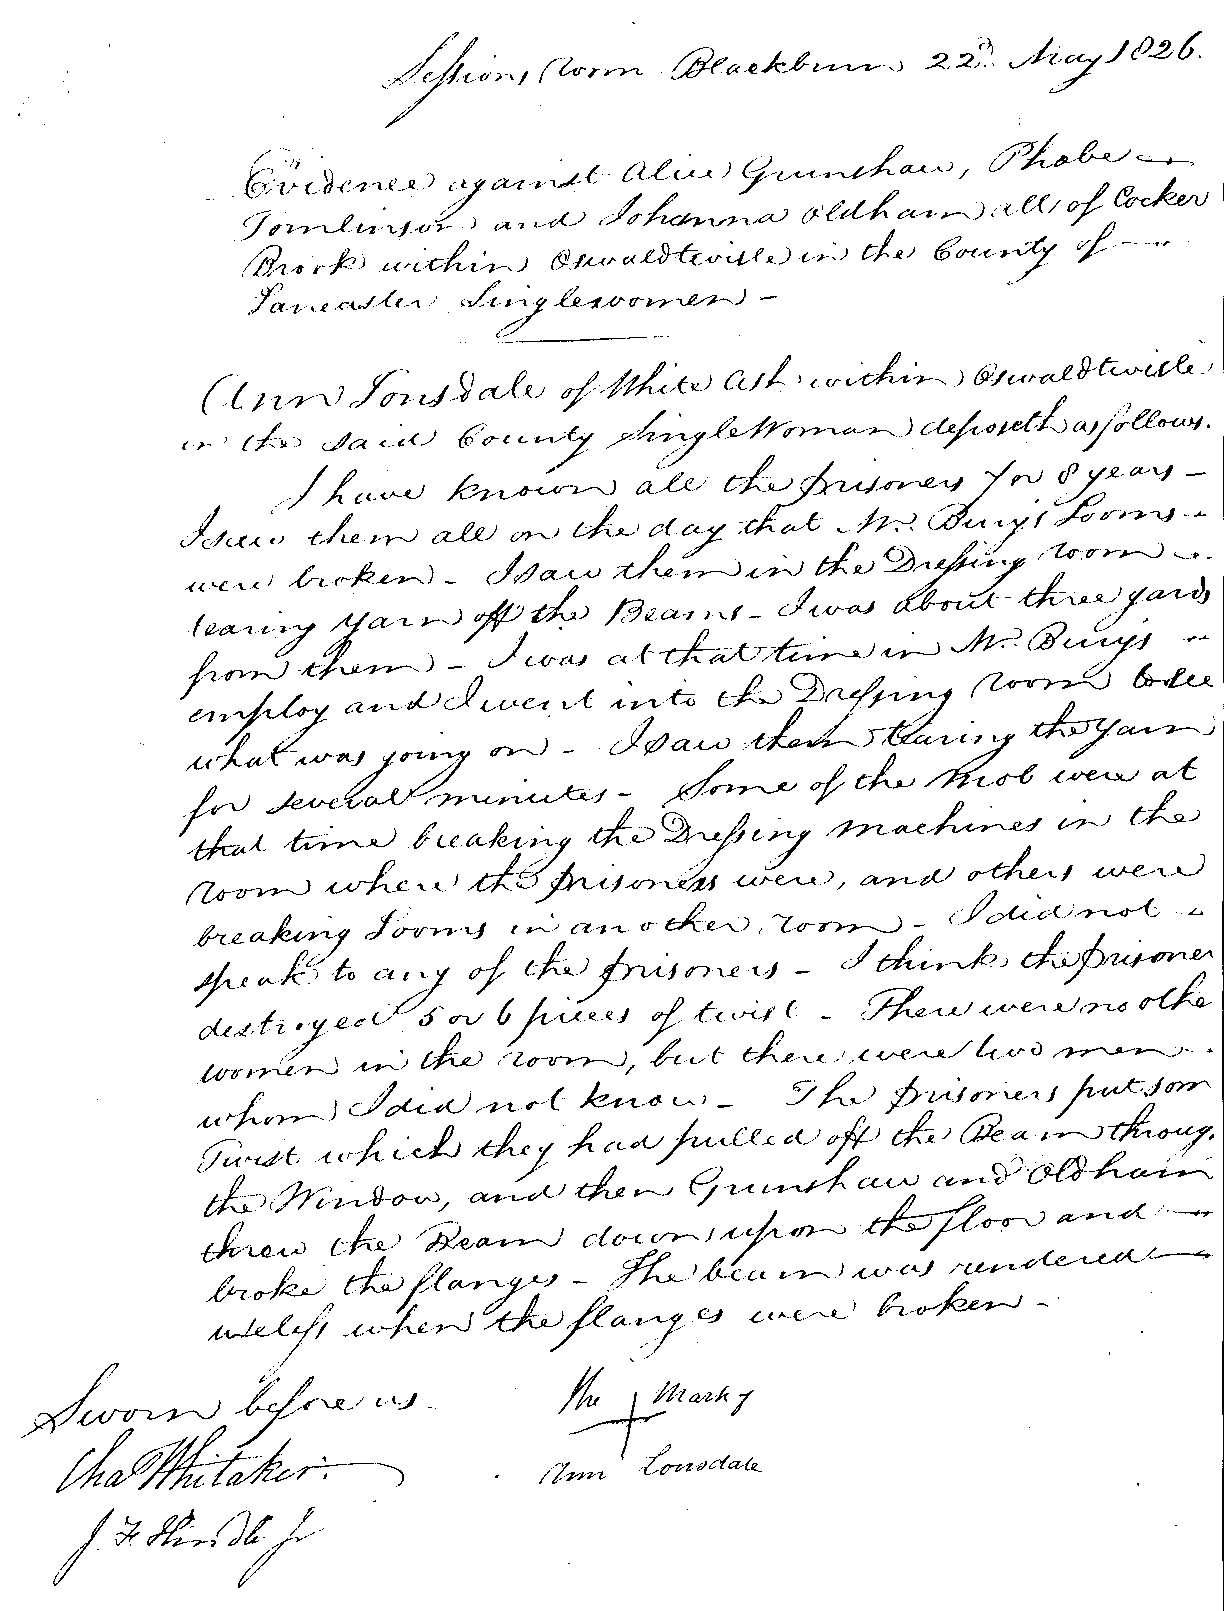 Sessions Room Blackburn 22d. May 1826.
Evidence against Alice Grimshaw, Phobe
Tomlinson and Johanna Oldham all of Cocker
Brook within Oswaldtwisle in the County of
Lancaster Singlewomen –
Ann Lonsdale of White Ash within Oswaldtwisle
in the said County SingleWoman deposeth as follows.
I have known all the prisoners for 8 years –
I saw them all on the day that Mr. Bury's Looms –
were broken – I saw them in the Dressing room –
tearing yarn off the Beams – I was about three yards
from them – I was at that time in Mr. Bury's
employ and I went into the Dressing room to see
what was going on – I saw them tearing the yarn
for several minutes – Some of the Mob were at
that time breaking the Dressing machines in the
room where the prisoners were, and others were
breaking Looms in another room – I did not –
speak to any of the prisoners – I think the prisoner
destroyed 5 or 6 pieces of twist – There were no othe
women in the room, but there were two men –
whom I did not know – The prisoners put som
Twist which they had pulled off the Beam throug
the Window, and then Grimshaw and Oldham
threw the Beam down upon the floor and
broke the flanges – The beam was rendered
useless when the flanges were broken –
Sworn before us
The Mark of
Ann Lonsdale
Cha Whitaker.
J. F. Hindle Jr